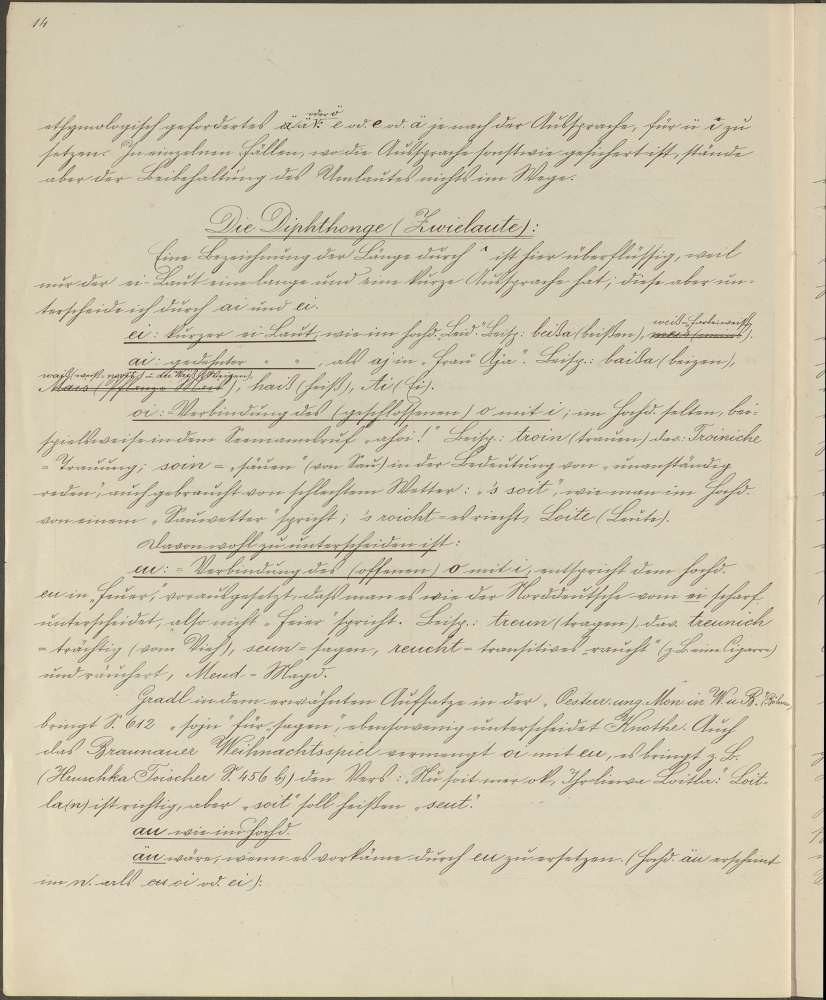 14
oder ö
ethymologisch gefordertes ä ê od. e od. ä je nach der Aussprache, für ü i zu
setzen. In einzelnen Fällen, wo die Aussprache sonstwie gesichert ist, stände
aber der Beibehaltung des Umlautes nichts im Wege.
Die Diphthonge (Zwielaute):
Eine Bezeichnung der Länge durch ˆ ist hier überflüssig, weil
nur der ei-Laut eine lange und eine kurze Aussprache hat; diese aber un-
terscheide ich durch ai und ei.
ei: kurzer ei-Laut, wie im hochd. Leid. Beisp: beißa (beißen), weiß = Farbe weiß
ai: gedehnter " " , als aj in „Frau Aja". Beisp.: baißa (beizen),
Mais (Pflanze Mais), haiß (heiß), Ai (Ei).
oi: Verbindung des (geschlossenen) o mit i; im Hochd. selten, bei-
spielsweise in dem Seemannsruf „ahoi!" Beisp: troin (trauen) das: Troiniche
= Trauung; soin = „säuen" (von Sau) in der Bedeutung von „unanständig
reden", auch gebraucht von schlechtem Wetter: „'s soit", wie man im Hochd.
von einem „Sauwetter" spricht; 's roicht = es riecht, Loite (Leute).
Davon wohl zu unterscheiden ist:
eu: = Verbindung des (offenen) o mit i, entspricht dem hochd.
eu in „Feuer", vorausgesetzt, daß man es wie der Norddeutsche vom ei scharf
unterscheidet, also nicht „Feier" spricht. Beisp.: treun (tragen) dav. treunich
= trächtig (vom Vieh), seun = sagen, reucht = transitives „raucht" (z.B. eine Cigarre)
und räuchert, Meud = Magd.
Gradl in dem erwähnten Aufsatze in der „Oesterr. ung. Mon. in W. u B." Böhmen,
bringt S 612 „sojn" für „sagen", ebensowenig unterscheidet Knothe. Auch
das Braunauer Weihnachtsspiel vermengt oi mit eu, es bringt z. B.
(Hruschka-Toischer S. 456 b) den Vers: „Nu soit mer ok, Ihr liewa Loitla". Loit-
la(n) ist richtig, aber „soit" soll heißen „seut".
au wie im Hochd.
äu wäre, wenn es vorkäme durch eu zu ersetzen. (Hochd. äu erscheint
im n. als eu oi od. ei):